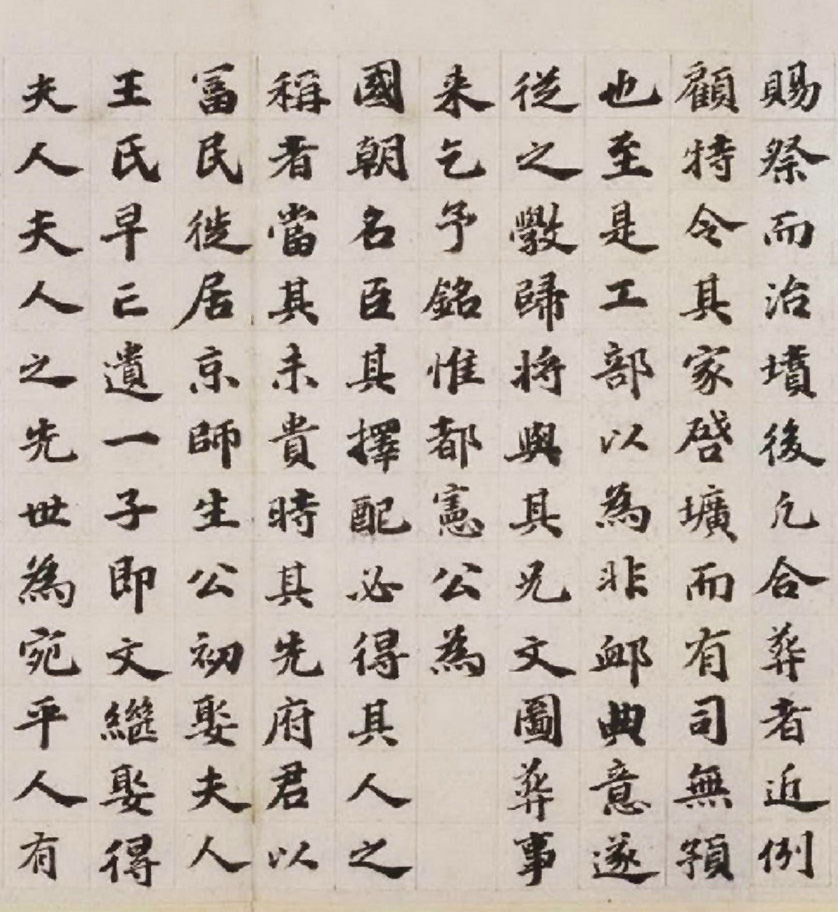 賜祭而治墳後凢合葬者近例
顧特令其家啓壙而有司無預
也至是工部以為非䘏典意遂
從之斆歸将與其兄文圖葬事
来乞予銘惟都憲公為
國朝名臣其擇配必得其人之
稱者當其未貴時其先府君以
富民徙居京師生公初娶夫人
王氏早亡遺一子即文繼娶得
夫人夫人之先世為宛平人有